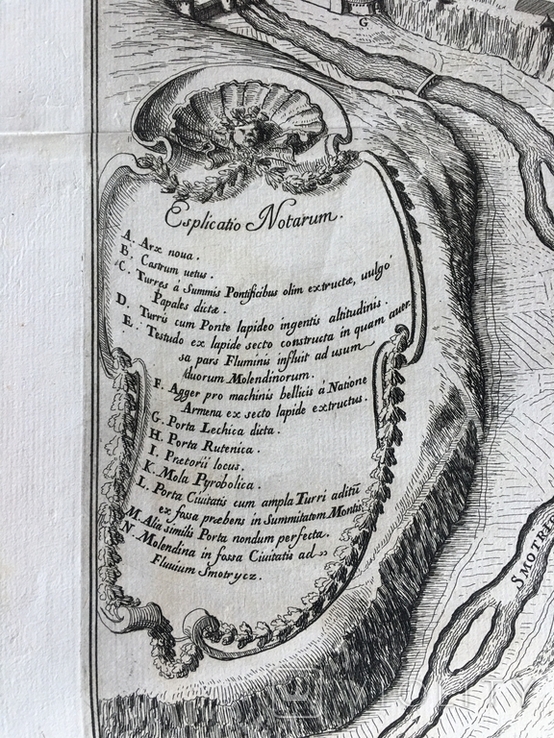 G
Esplicatio Notarum.
A. Arx noua.
B. Castrum uetus.
C. Turres à Summis Pontificibus olim extructæ, uulgo
Papales dictæ.
D. Turris cum Ponte lapideo ingentis altitudinis.
E. Testudo ex lapide secto constructa in quam auer
sa pars Fluminis influit ad usum
duorum Molendinorum.
F. Agger pro machinis bellicis à Natione
Armena ex secto lapide extructus.
G. Porta Lechica dicta.
H. Porta Rutenica.
I. Prætorii locus.
K. Mola Pyrobolica.
L. Porta Ciuitatis cum ampla Turri aditũ
ex fossa præbens in Summitatem Montis
M. Alia similis Porta nondum perfecta.
N. Molendina in fossa Ciuitatis ad »
Fluuium Smotrycz.
SMOTRE